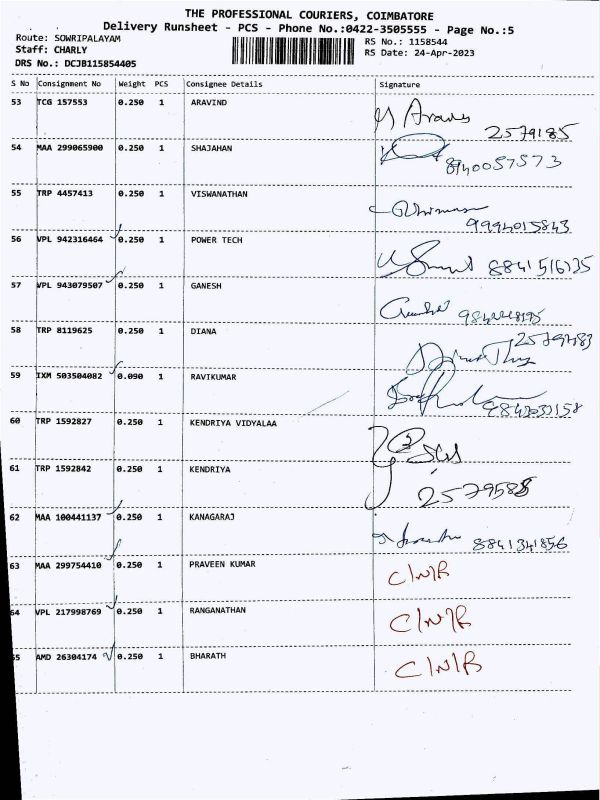 THE PROFESSIONAL COURIERS, COIMBATORE
Delivery Runsheet - PCS - Phone No.:0422-3505555 - Page No.:5
Route: SOWRIPALAYAM RS No.: 1158544
Staff: CHARLY RS Date: 24-Apr-2023
DRS No.: DCJB115854405
S No Consignment No Weight PCS Consignee Details Signature
53 TCG 157553 0.250 1 ARAVIND
2579185
54 MAA 299065900 0.250 1 SHAJAHAN
8940057573
55 TRP 4457413 0.250 1 VISWANATHAN
9994015843
56 VPL 942316464 0.250 1 POWER TECH
57 VPL 943079507 0.250 1 GANESH
58 TRP 8119625 0.250 1 DIANA
59 IXM 503504082 0.090 1 RAVIKUMAR
60 TRP 1592827 0.250 1 KENDRIYA VIDYALAA
61 TRP 1592842 0.250 1 KENDRIYA
62 MAA 100441137 0.250 1 KANAGARAJ
8841341856
63 MAA 299754410 0.250 1 PRAVEEN KUMAR C/N/R
64 VPL 217998769 0.250 1 RANGANATHAN C/N/R
65 AMD 26304174 0.250 1 BHARATH C/N/R